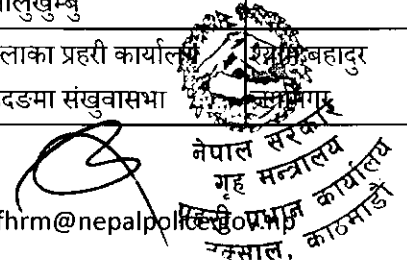 सोलुखुम्बु
इलाका प्रहरी कार्यालय
चैनपुर संखुवासभा
बहादुर
नेपाल सरकार
गृह मन्त्रालय
प्रहरी प्रधान कार्यालय
नक्साल, काठमाडौं
fhrm@nepalpolice.gov.np